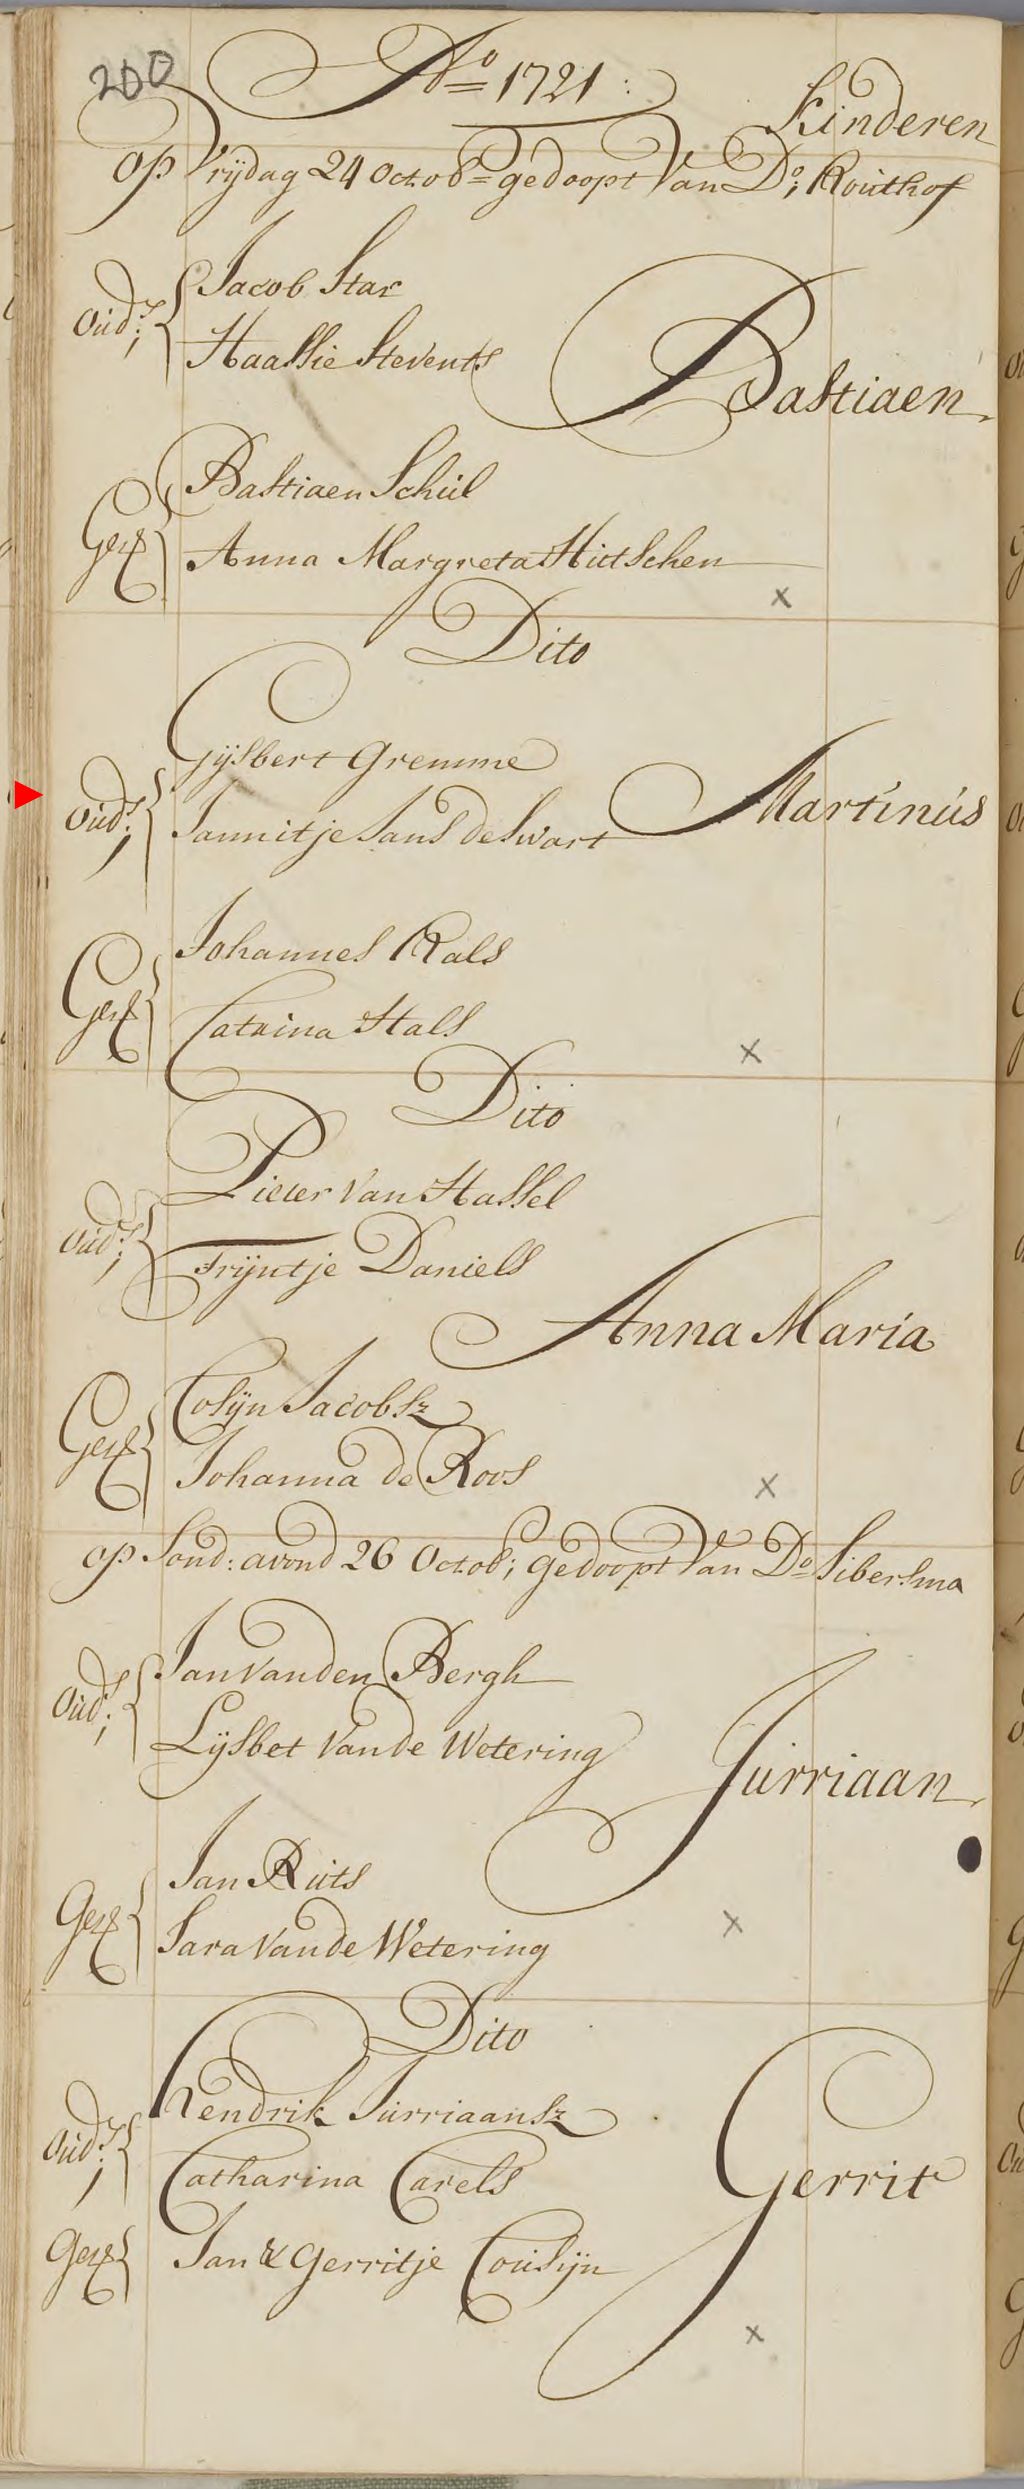 200
Ao 1721:
Kinderen
op Vrijdag 24 Octob= gedoopt Van Do; Kouthof
Oud.s;
Jacob Star
Haassie Stevents
Bastiaen
Get
Bastiaen Schul
Anna Margreta Hutschen
x
Dito
Oud.s;
Gijsbert Gremme
Jannitje Jans de Swart
Martinus
Get
Johannes Rals
Catrina Stals
x
Dito
Oud.s;
Pieter Van Hassel
Trijntje Daniels
Anna Maria
Get
Cosijn Jacobsz
Johanna de Roos
x
op Sond: avond 26 Octob; gedoopt Van Do Sibersma
Oud.s;
Jan Vanden Bergh
Lijsbet Vande Wetering
Jurriaan
Get
Jan Ruts
Sara Vande Wetering
x
Dito
Oud.s;
Hendrik Jurriaansz
Catharina Carels
Gerrit
Get
Jan & Gerritje Cousijn
x